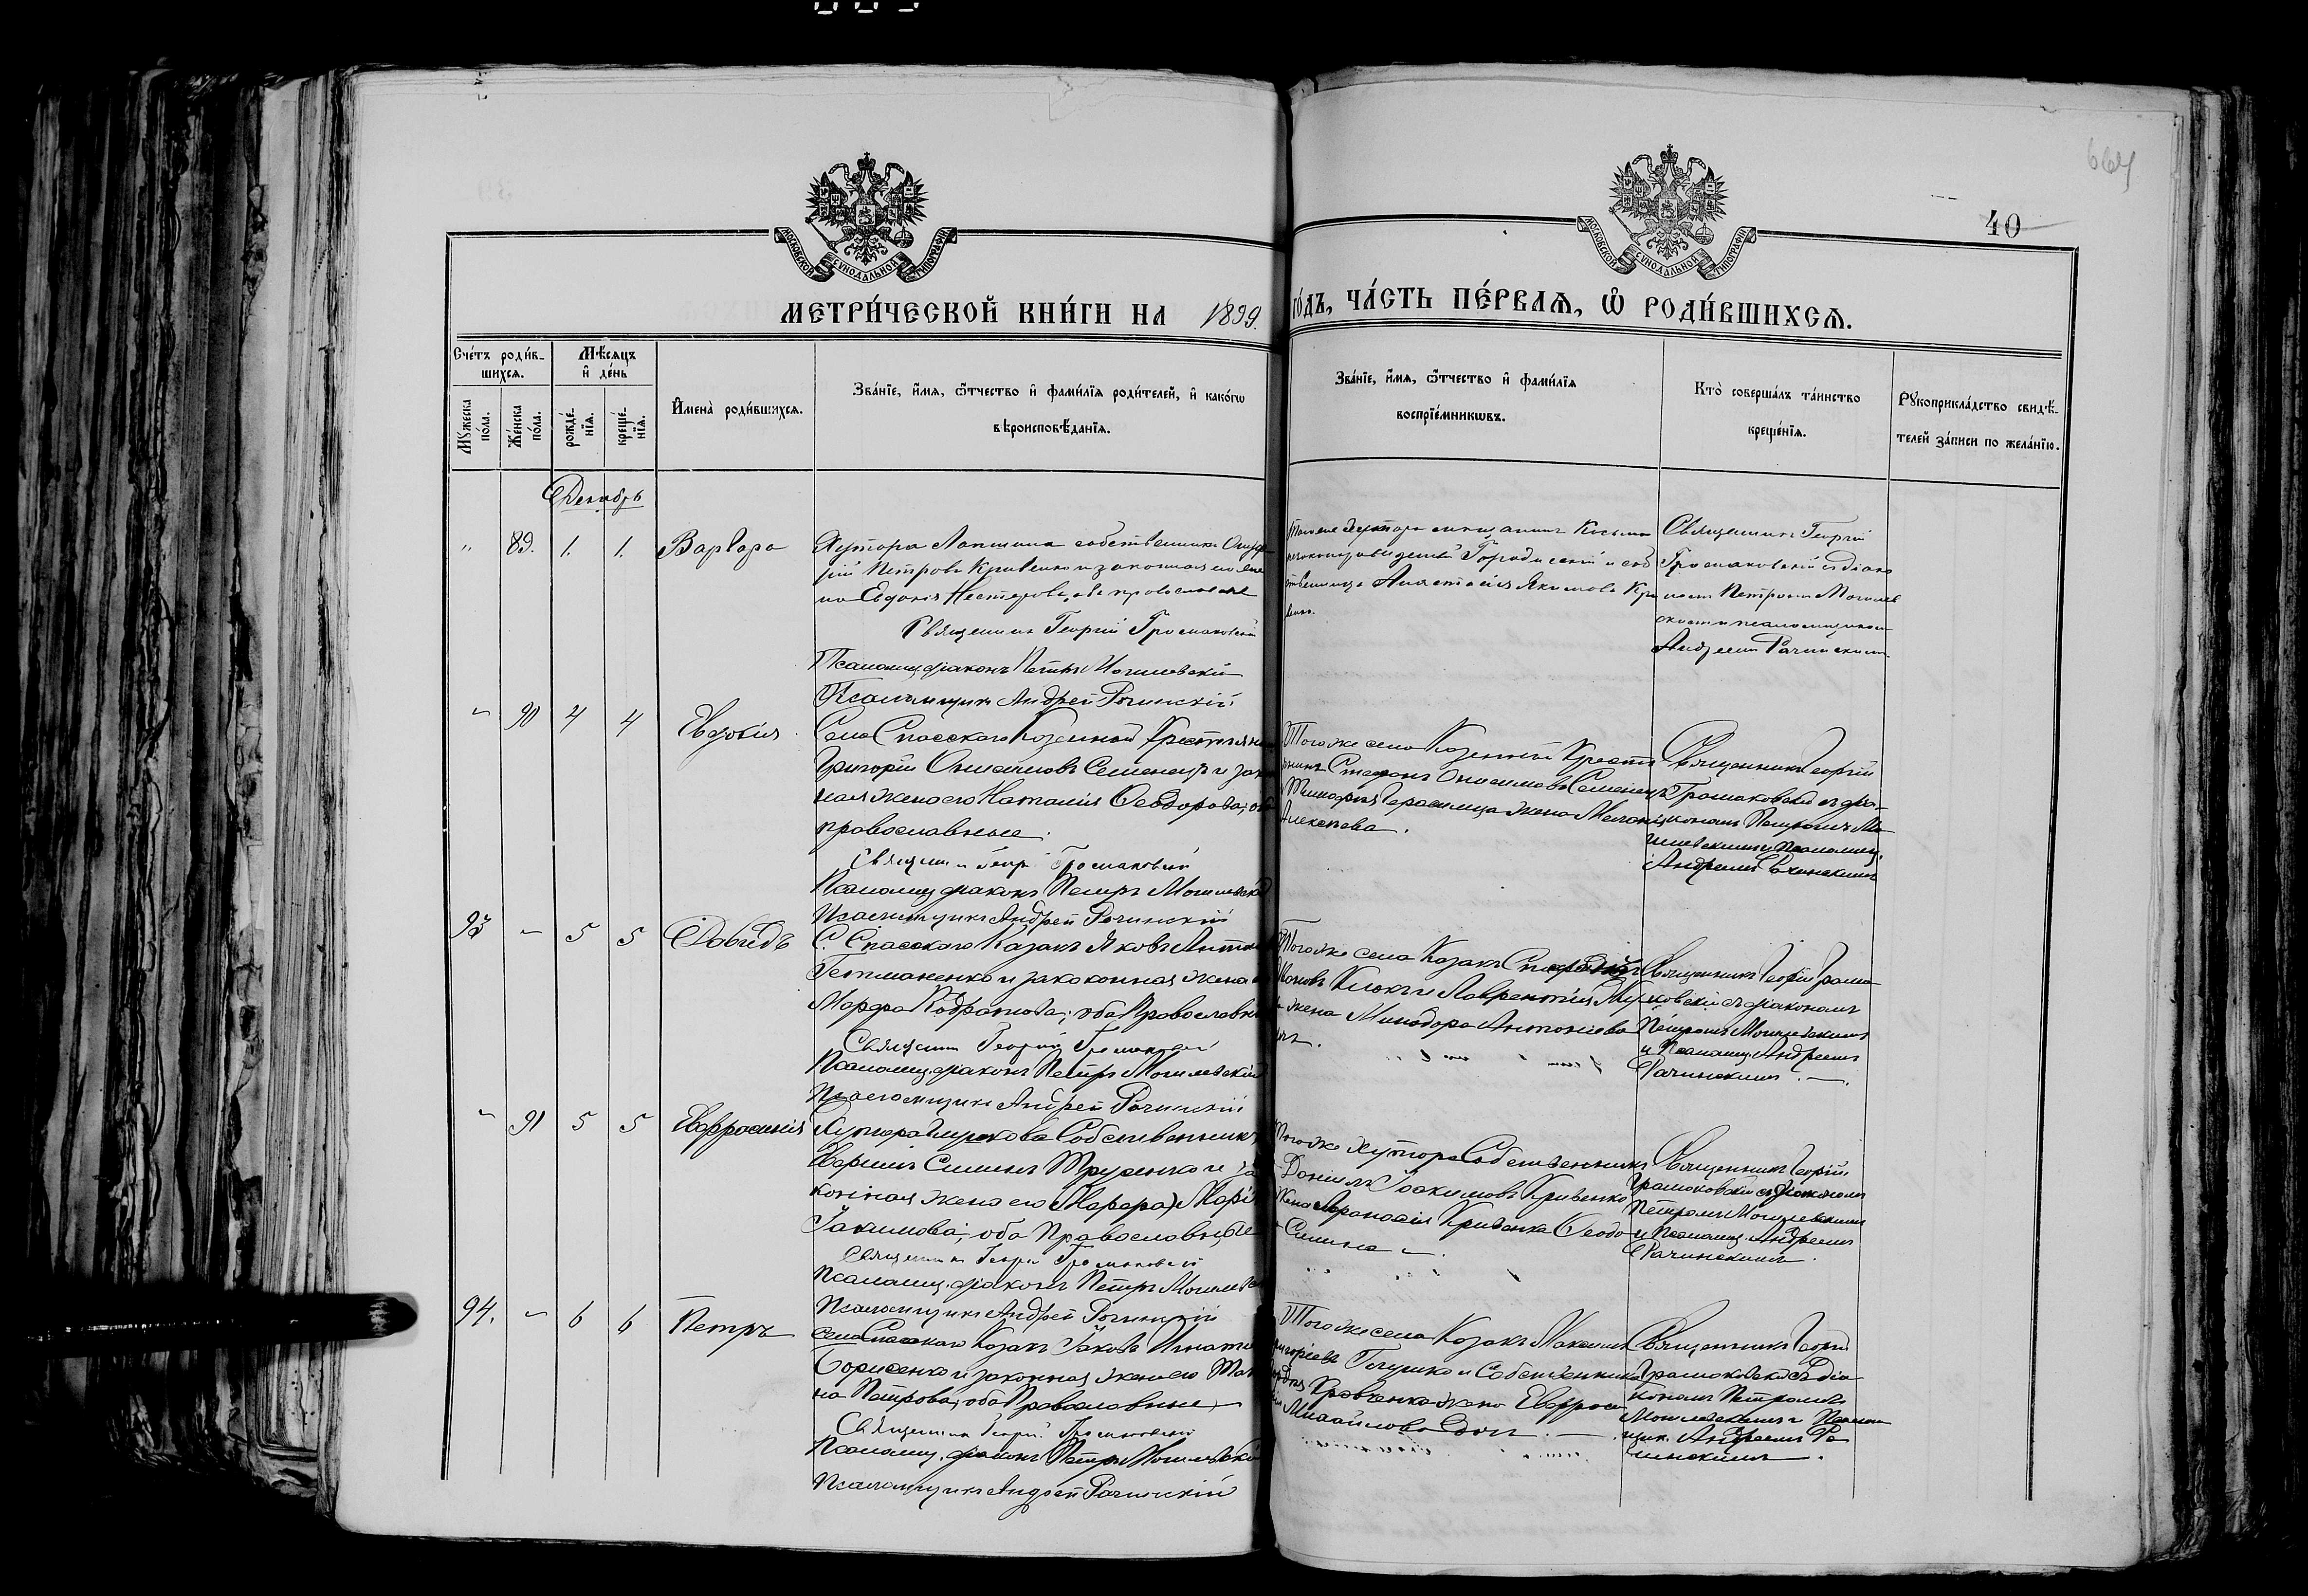 664
40
МОСКОВСКОЙ СѴНОДАЛЬНОЙ ТИПОГРАФІИ
МОСКОВСКОЙ СѴНОДАЛЬНОЙ ТИПОГРАФІИ
МЕТРИ́ЧЕСКОЙ КНИ́ГИ НА 1899 го́дъ, ЧА́СТЬ ПЕ́РВАѦ, Ѡ҆ РОДИ́ВШИХСѦ.
Сче́тъ роди́в-
шихсѧ.
Мѣ́сѧцъ
и҆ де́нь
Мꙋ́жеска
по́ла.
Же́нска
по́ла.
рожде́-
нїѧ.
креще́-
нїѧ.
И҆мена̀ роди́вшихсѧ.
Зва́нїе, и҆́мѧ, ѻ҆́тчество и҆ фами́лїѧ роди́телей, и҆ како́гѡ
вѣроисповѣ́данїѧ.
Зва́нїе, и҆́мѧ, ѻ҆́тчество и҆ фами́лїѧ
воспрїе́мникѡвъ.
Кто̀ соверша́лъ та́инство
креще́нїѧ.
Рꙋкоприкла́дство свидѣ́-
телей за́писи по жела́нїю.
Декабрь
89. 1. 1. Варвара
Хутора Лапшина собственникъ
Петровъ Кривенко и законная его же
на Евдокія Нестерова, оба православные
Священникъ Георгій Громаковскій
Псаломщ. діаконъ Петръ Могилевскій
Псаломщикъ Андрей Рачинскій
Того же хутора мещанинъ Косьма
и соб
ственница Анастасія Якимова Кри
венко.
Священникъ Георгій
Громаковскій съ діако
номъ Петромъ Могилев
скимъ и псаломщикомъ
Андреемъ Рачинскимъ
90 4 4 Евдокія
Села Спасскаго Казенный Крестьянин
Григорій Онисимовъ Семенецъ и зако
ная жена его Наталія Ѳеодорова, оба
православные.
Священникъ Георг. Громаковскій
Псаломщ. діаконъ Петръ Могилевскій
Псаломщикъ Андрей Рачинскій
Того же села Казенный Кресть
янинъ Стефанъ Онисимовъ Семенецъ
жена
Алексѣева.
Священникъ Георгій
Громаковскій съ діа-
кономъ Петромъ Мо
гилевскимъ и Псаломщ.
Андреемъ Рачинскимъ
93 5 5 Давидъ
С. Спасскаго Казакъ Яковъ Анто
Гетманенко и законная жена
Марфа Кодратова; оба Православн
Священникъ Георгій Громаковскій
Псаломщ. діаконъ Петръ Могилевскій
Псаломщикъ Андрей Рачинскій
Того же села Казакъ
и Лаврентія
жена Минодора Антоніева
Священникъ Георгій Грома
ковскій съ діакономъ
Петромъ Могилевскимъ
и Псаломщ. Андреемъ
Рачинскимъ.
91 5 5 Евфросинія
Хутора Собственникъ
и за
конная жена его (Марфа) Марі
Іакимова; оба Православные
Священникъ Георгій Громаковскій
Псаломщ. діаконъ Петръ Могилевс
Псаломщикъ Андрей Рачинскій
Того же хутора Собственникъ
Даніилъ Іоакимовъ Кривенко
Жена Афанасія Кривенка Ѳеодо
Священникъ Георгій
Громаковскій съ діакономъ
Петромъ Могилевскимъ
и Псаломщ. Андреемъ
Рачинскимъ.
94. 6 6 Петръ
села Спасскаго Казакъ Іаковъ Игнаті
Борисенко и законная жена его Тать
на Петрова, оба Православные
Священникъ Георгій Громаковскій
Псаломщ. діаконъ Петръ Могилевскі
Псаломщикъ Андрей Рачинскій
Того же села Казакъ Максимъ
и Собственника
Кравченка жена Евфроси
Михайлова
Священникъ Георгій
Громаковскій съ Діа
кономъ Петромъ
Могилевскимъ и Псалом
щик. Андреемъ Ра
чинскимъ.